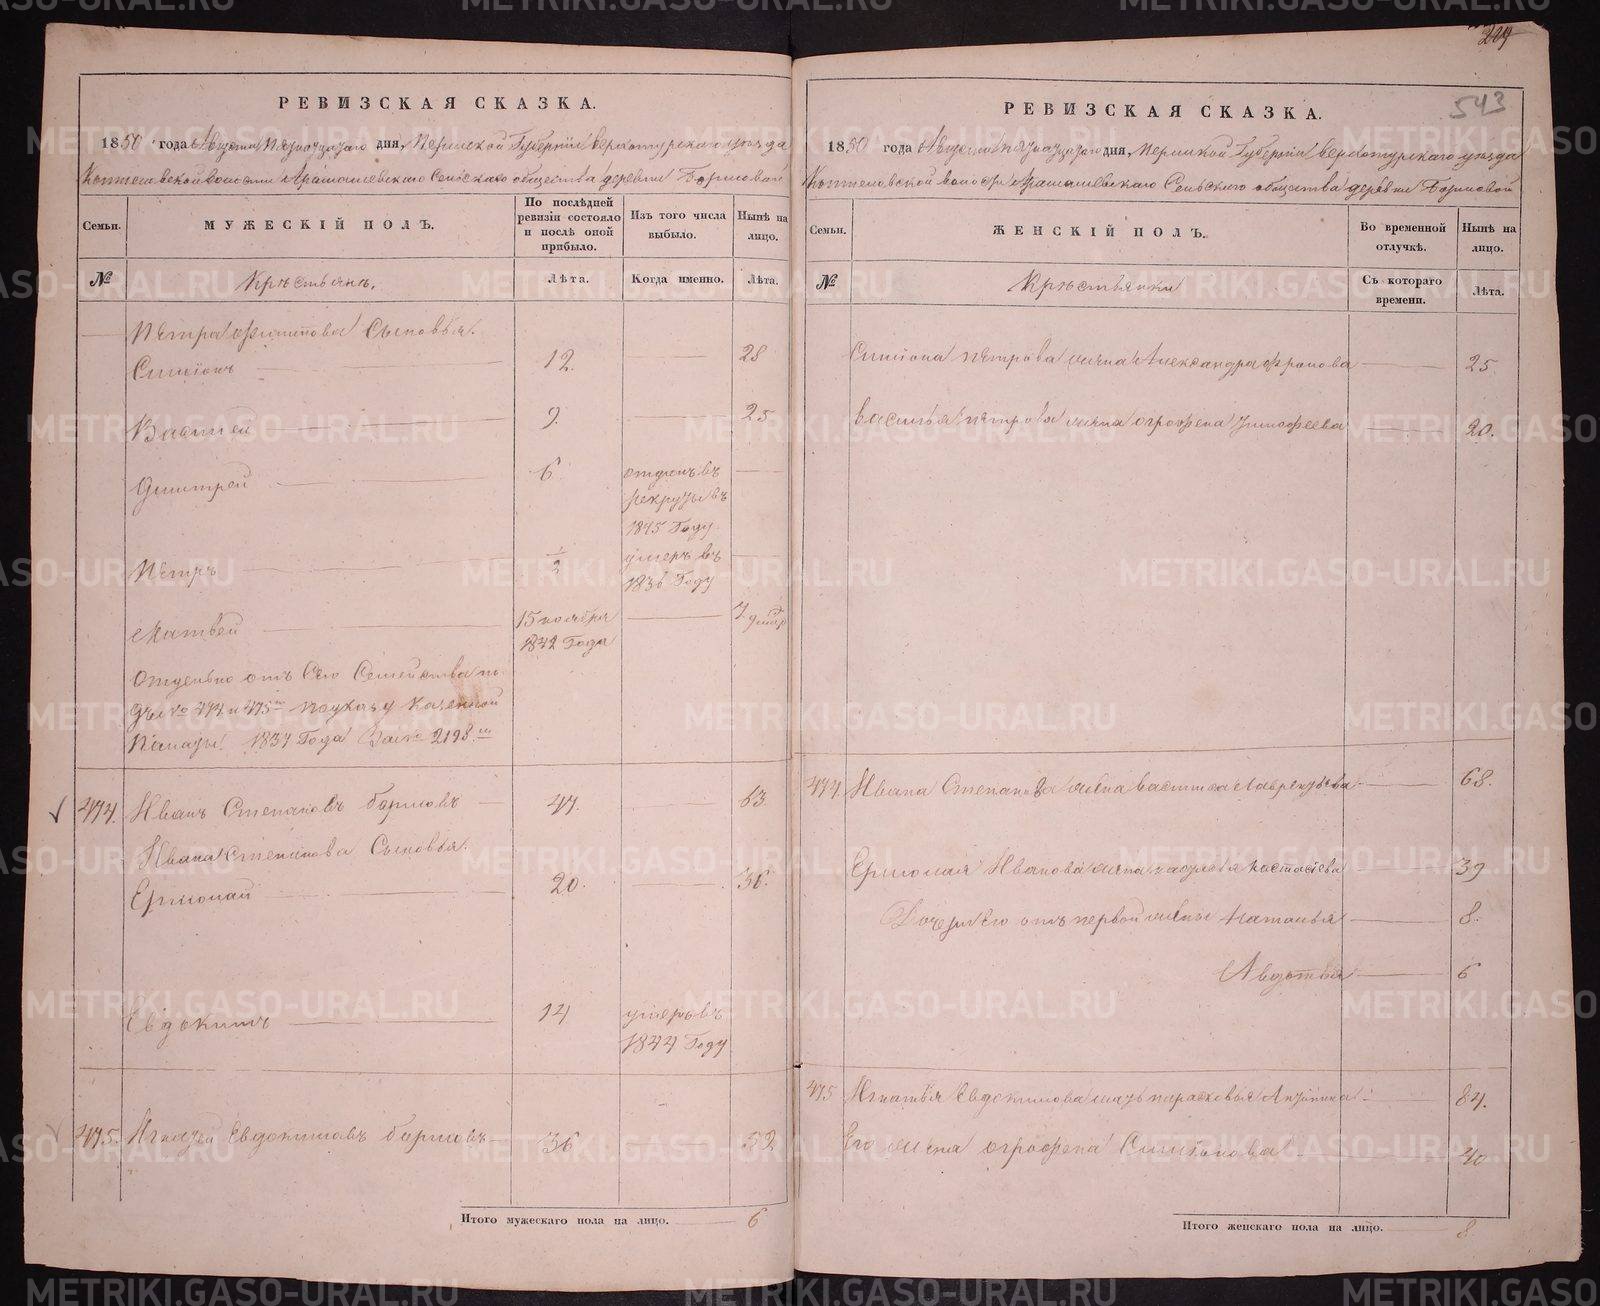 229
543
РЕВИЗСКАЯ СКАЗКА.
1850 года Августа пятнацатаго дня, Пермской Губерніи верхотурскаго уѣзда
Коптеловской волости Арамашевскаго Сельскаго общества деревни
Семьи.
МУЖЕСКІЙ ПОЛЪ.
По послѣдней ревизіи состояло и послѣ оной прибыло.
Изъ того числа выбыло.
Нынѣ на лицо.
№
Крестьянъ.
Лѣта.
Когда именно.
Лѣта.
Петра Филипова Сыновья.
Симіонъ 12. 28
Василей 9. 25
Дмитрей 6 отданъ въ
рекруты въ
1845 Году
Петръ 1/2 умеръ въ
1836 Году
Матвей 15 ноября 7
1842 Года
Отдельно отъ Сего Семейства по
474 и 475 по указу Казенной
Палаты 1837 Года За № 2198
474. Иванъ Степановъ 47. 63
Ивана Степанова Сыновья.
Ермолай 20. 36.
Евдокимъ 14 умеръ въ
1844 Году
475. Игнатей Евдокимовъ 36 52
Итого мужескаго пола на лицо. 6
РЕВИЗСКАЯ СКАЗКА.
1850 года Августа пятнацатаго дня, Пермской Губерніи верхотурскаго уѣзда
Коптеловской волости Арамашевскаго Сельскаго общества деревни
Семьи.
ЖЕНСКІЙ ПОЛЪ.
Во временной отлучкѣ.
Нынѣ на лицо.
№
Крестьянки
Съ котораго времени.
Лѣта.
Симіона Петрова жена Александра Фролова 25
Василья Петрова жена огрофена Тимофеева 20.
474 Ивана Степанова жена василиса Лаврентьева 68.
Ермолая Иванова жена 39
Дочери Его отъ первой жены Наталья 8.
Авдотья 6
475 Игнатья Евдокимова мать парасковья 84.
Его жена огрофена Симіонова 40
Итого женскаго пола на лицо. 8
METRIKI.GASO-URAL.RU